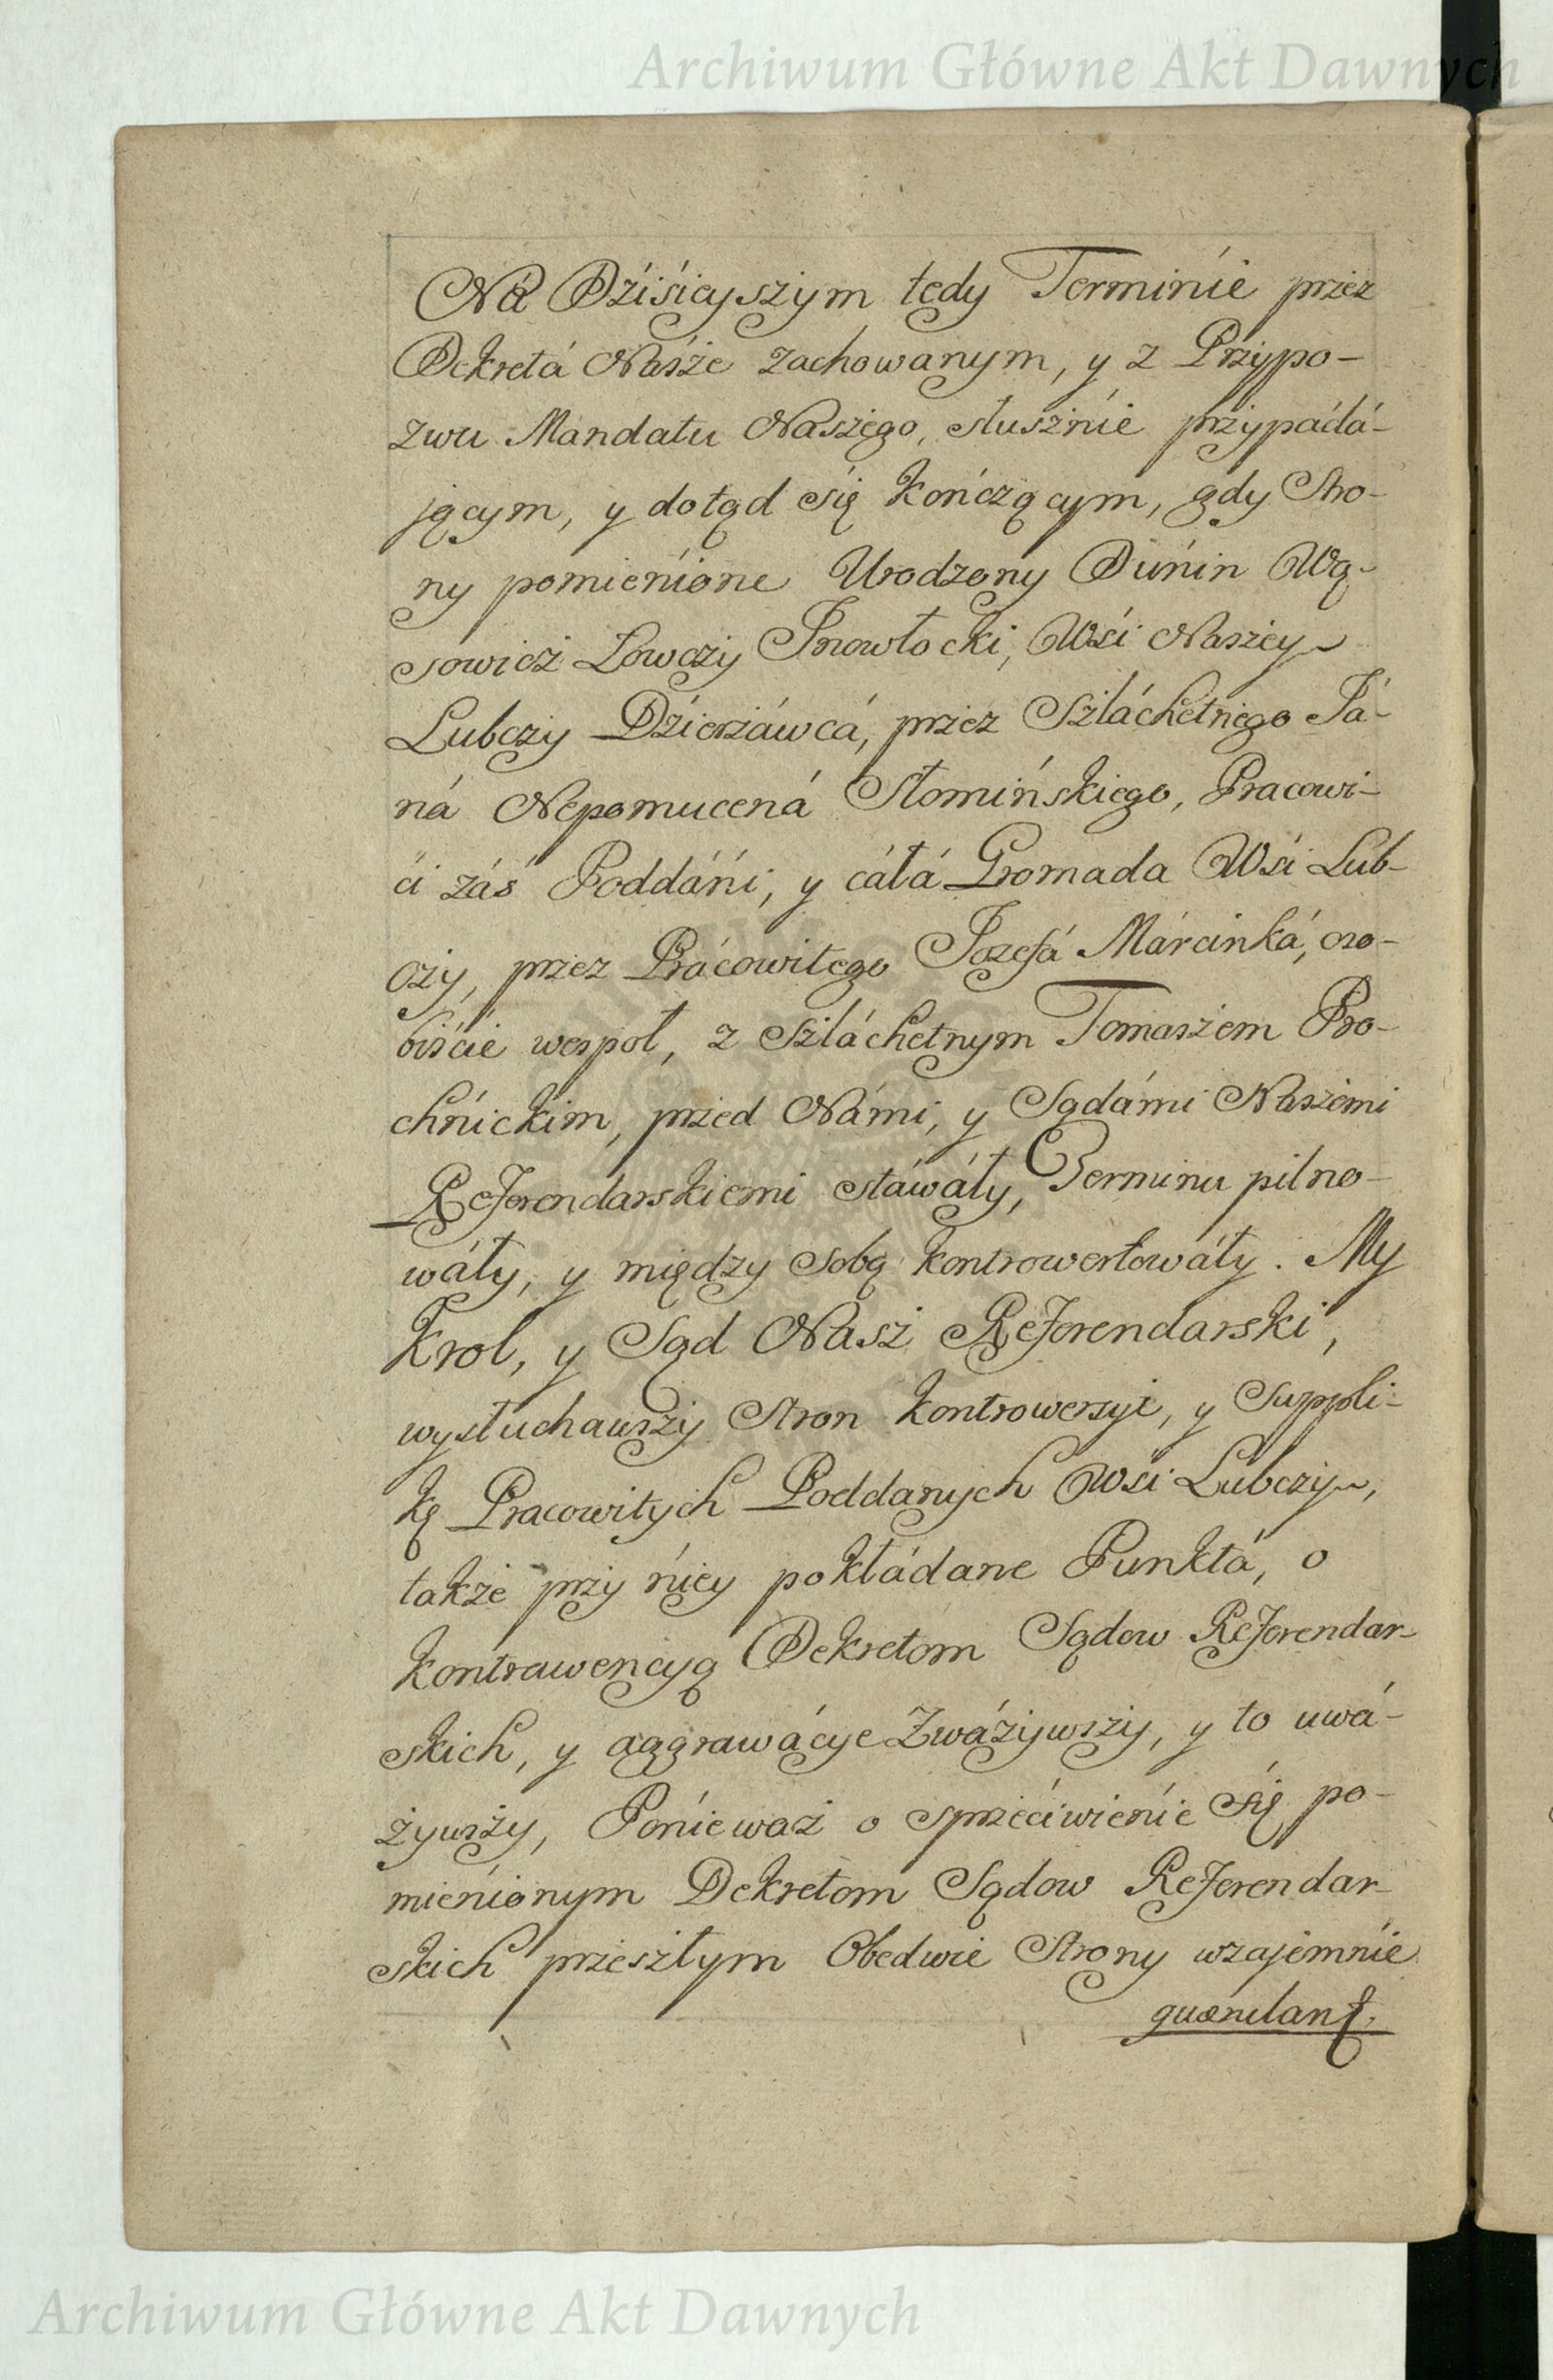 Archiwum Główne Akt Dawnych
Ná Dźiśieyszym tedy Terminie przez
Dekretá Násże zachowanym, y z Przypo-
zwu Mandatu Naszego, słusznie przypádá-
jącym, y dotąd się kończącym, gdy Stro-
ny pomienione Urodzony Dunin Wą-
sowicz Łowczy Inowłocki, Wśi Naszey
Lubczy Dźierżáwcá, przez Szláchetnego Já-
ná Nepomucená Słomińskiego, Pracowi-
ći záś Poddáńi, y cáłá Gromada Wśi Lub-
czy, przez Prácowitego Jozefá Márcinká, oso-
biśćie wespoł, z Szláchetnym Tomaszem Pro-
chńickim, przed Námi, y Sądámi Naszemi
Referendarskiemi stáwáły, Terminu pilno-
wáły, y między sobą kontrowertowáły. My
Krol, y Sąd Nasz Referendarski,
wysłuchawszy Stron kontrowersyi, y Suppli-
kę Pracowitych Poddanych Wśi Lubczy,
także przy ńiey pokłádane Punktá, o
kontrawencyą Dekretom Sądow Referendar-
skich, y aggrawácye Zwáżywszy, y to uwá-
żywszy, Ponieważ o sprzećiwienie się po-
mienionym Dekretom Sądow Referendar-
skich przeszłym Obedwie Strony wzajemnie
quærulant.
Archiwum Główne Akt Dawnych